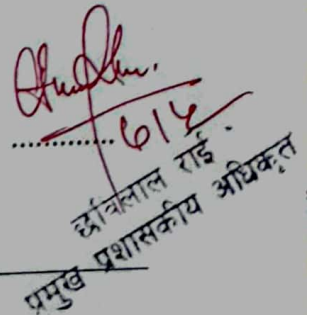 ६।५
छविलाल राई.
प्रमुख प्रशासकीय अधिकृत